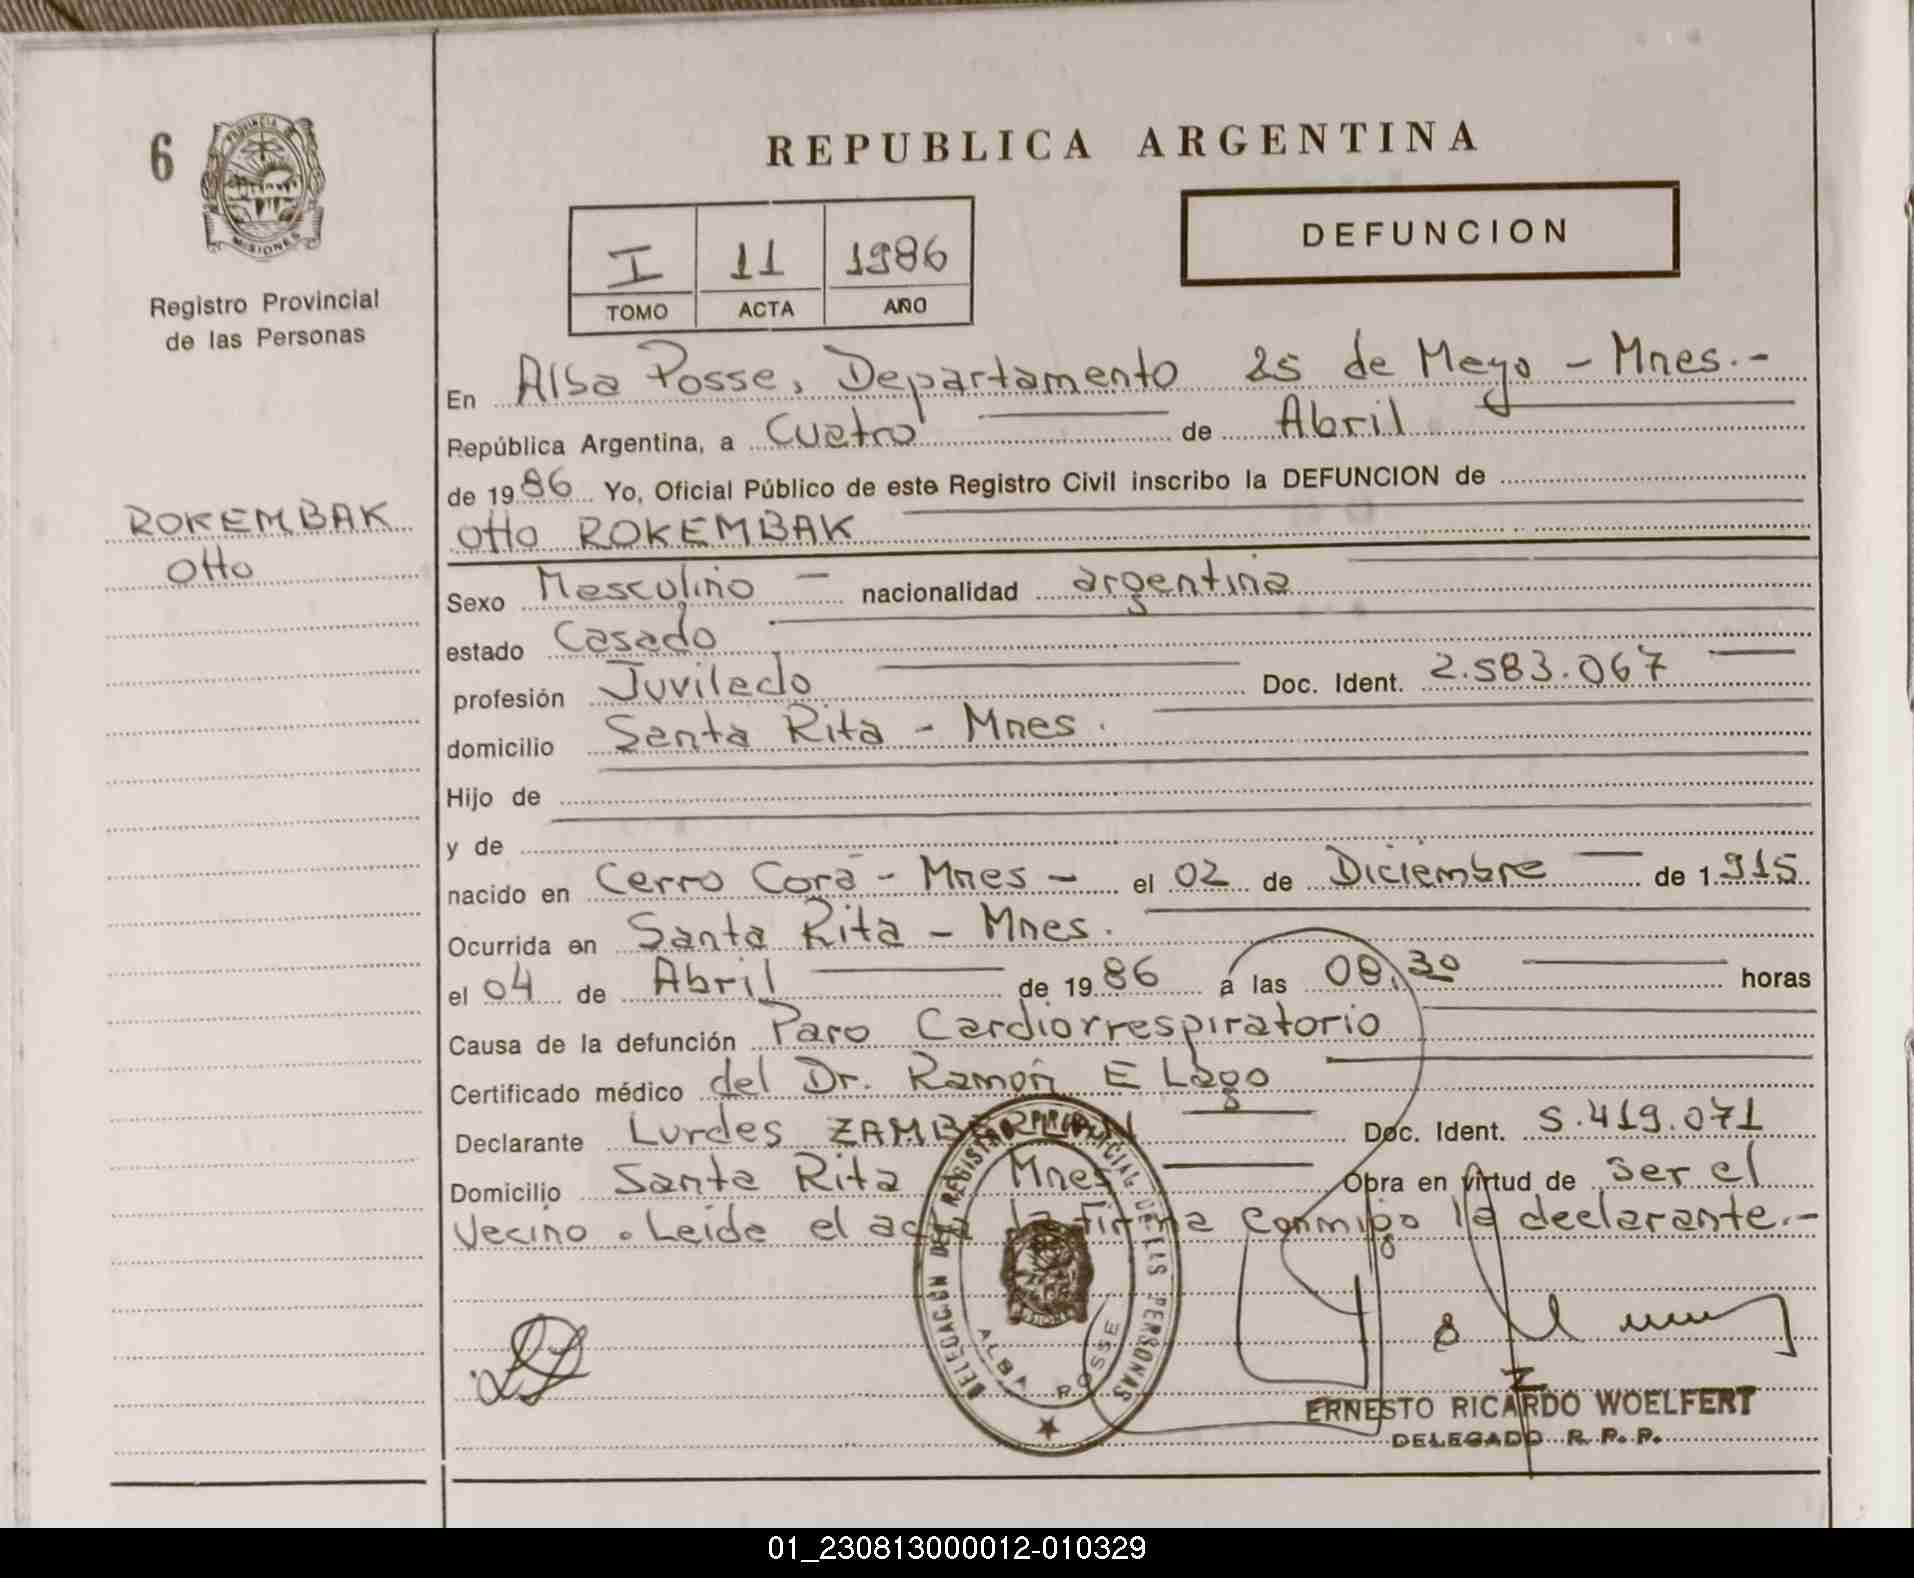 6
PROVINCIA DE
MISIONES
Registro Provincial
de las Personas
ROKEMBAK
Otto
REPUBLICA ARGENTINA
I 11 1986
TOMO ACTA AÑO
DEFUNCION
En Alba Posse, Departamento 25 de Mayo - Mnes.-
República Argentina, a Cuatro de Abril
de 1986 Yo, Oficial Público de este Registro Civil inscribo la DEFUNCION de
Otto ROKEMBAK
Sexo Masculino - nacionalidad argentina
estado Casado
profesión Juvilado Doc. Ident. 2.583.067
domicilio Santa Rita - Mnes.
Hijo de
y de
nacido en Cerro Corá - Mnes - el 02 de Diciembre de 1915
Ocurrida en Santa Rita - Mnes.
el 04 de Abril de 1986 a las 08.30 horas
Causa de la defunción Paro Cardiorrespiratorio
Certificado médico del Dr. Ramón E Lago
Declarante Lurdes ZAMBERLAN Doc. Ident. 5.419.071
Domicilio Santa Rita Mnes Obra en virtud de ser el
Vecino. Leida el acta la firma conmigo la declarante.-
DELEGACION DEL REGISTRO PROVINCIAL DE LAS PERSONAS
ALBA POSSE
ERNESTO RICARDO WOELFERT
DELEGADO R. P. P.
01_230813000012-010329